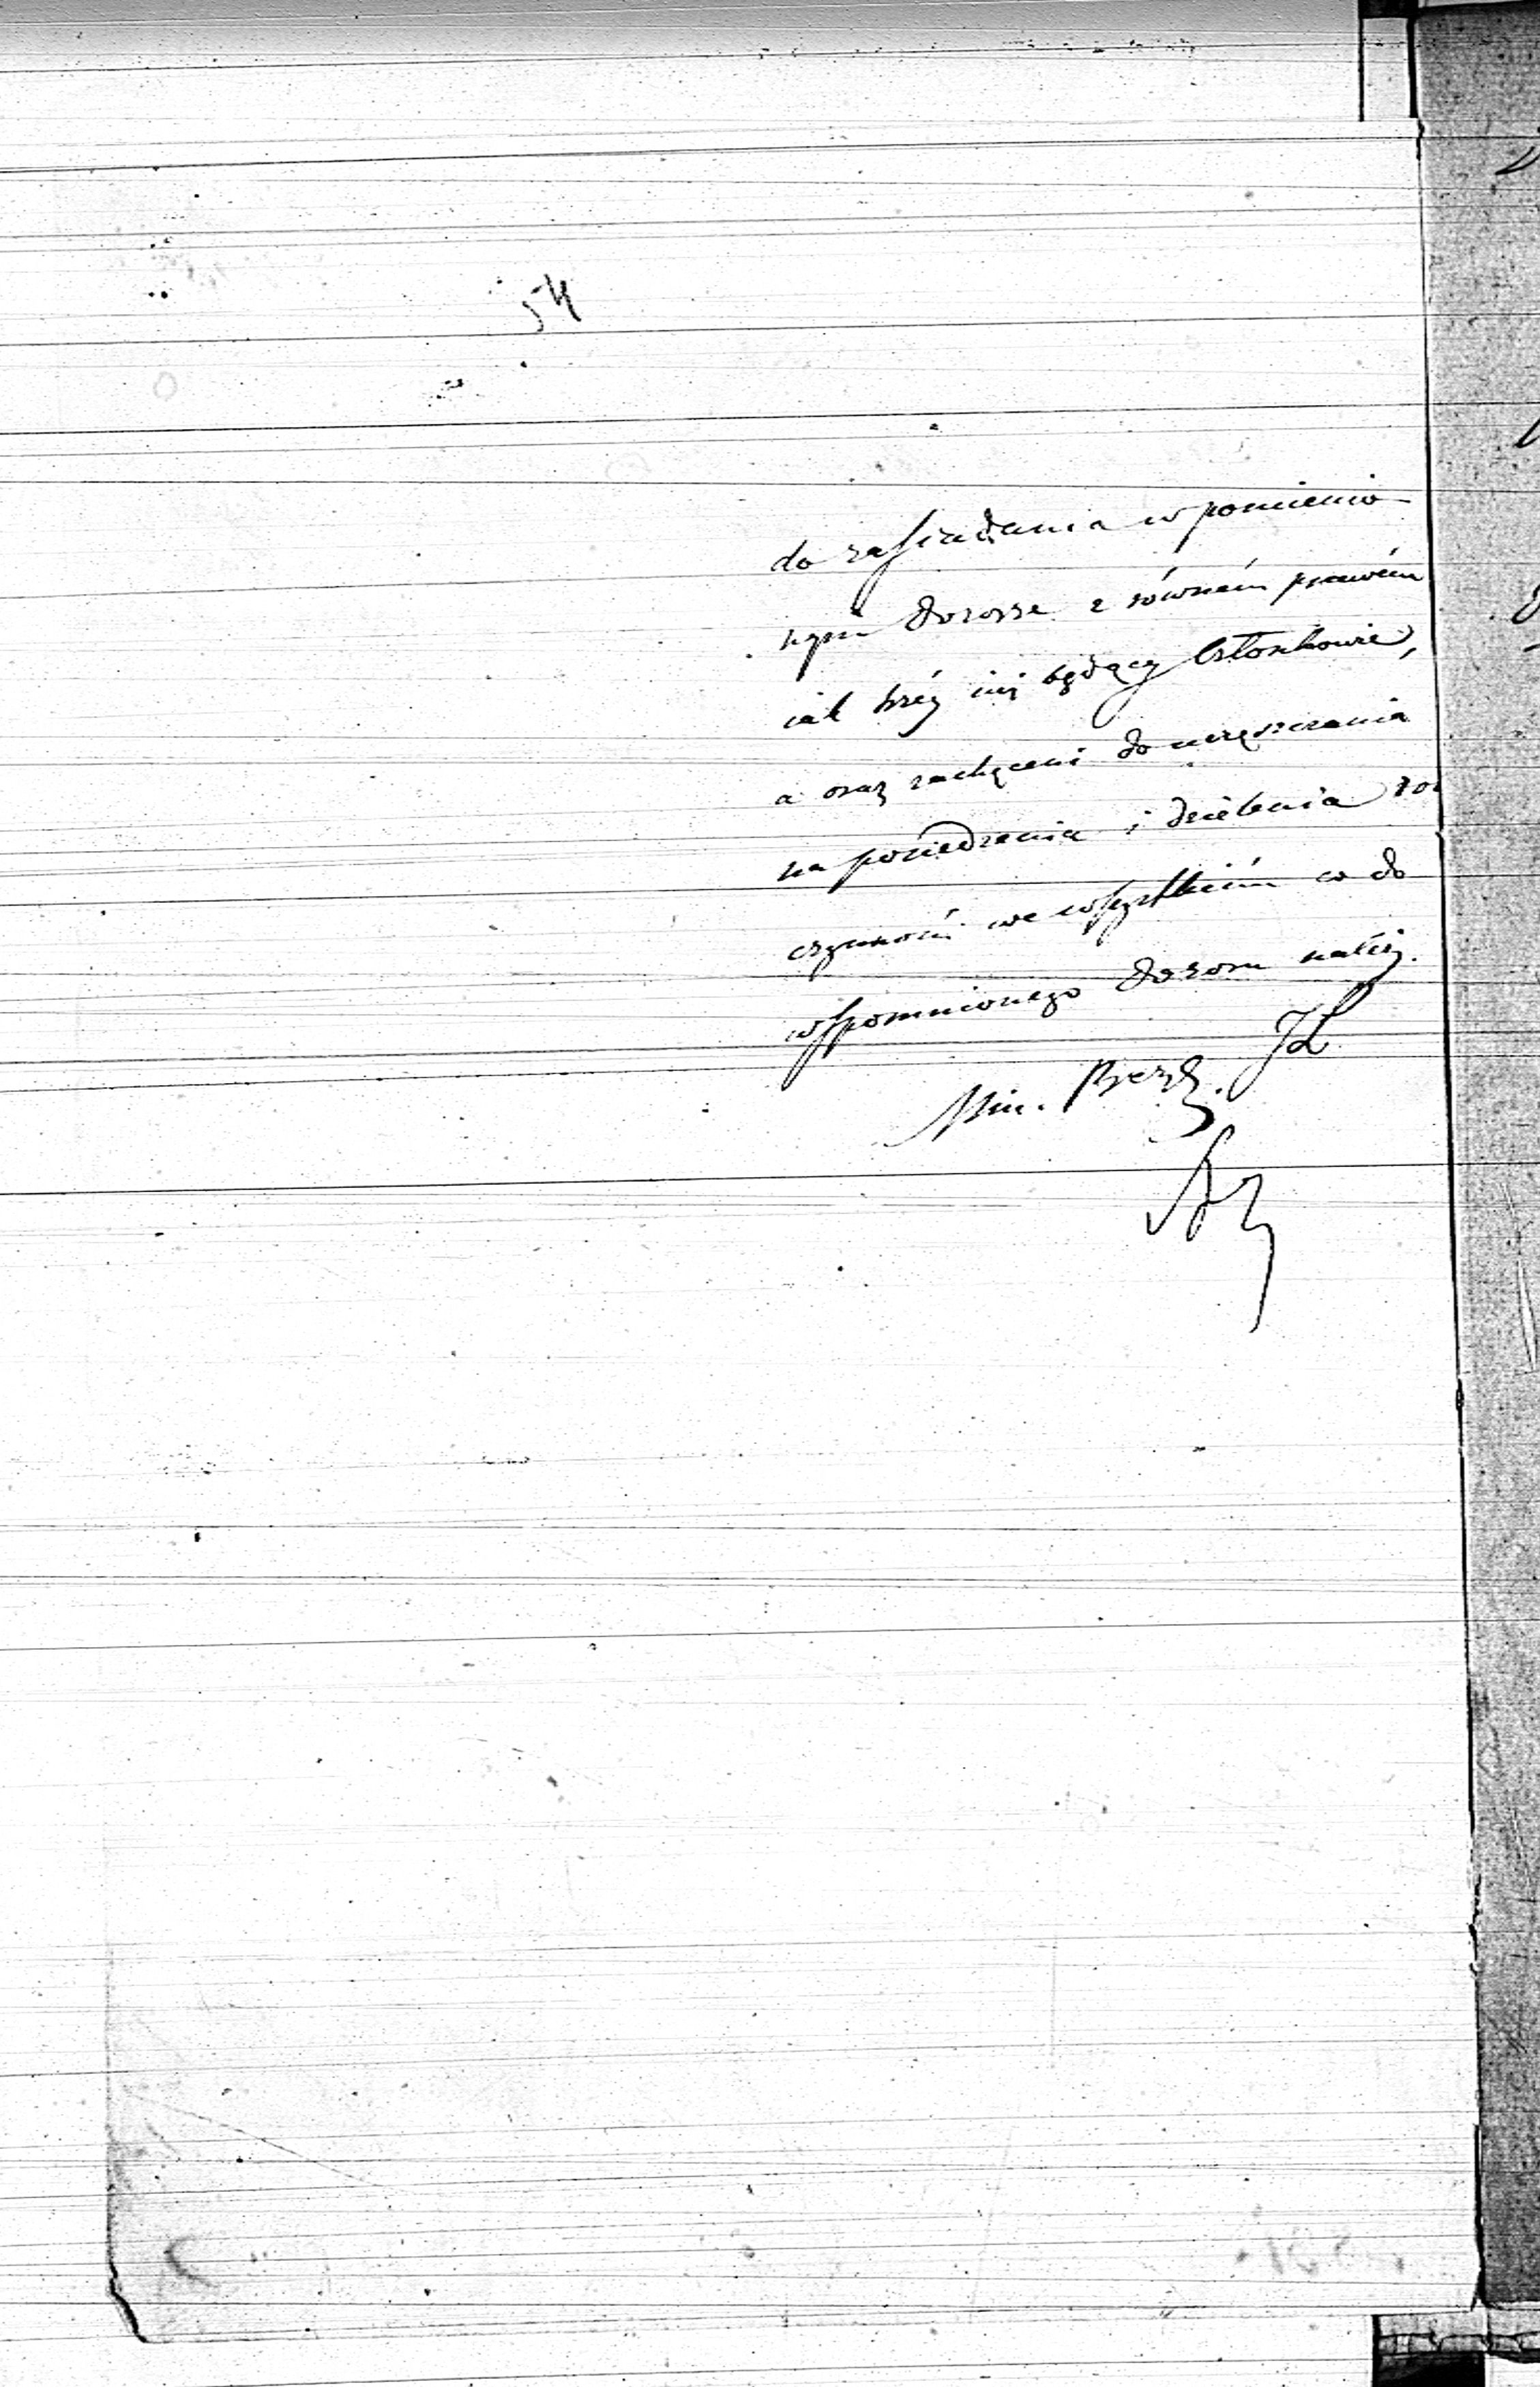 54
do zasiadania w pomienio-
nym Dozorze z równém prawém
iak trzéy iuż będący Członkowie,
a oraz zachęceni do uczęszczania
na posiedzenia i dzielenia
czynności we wszystkiém co do
wspomnionego Dozoru należy.
Min. Prezyd.